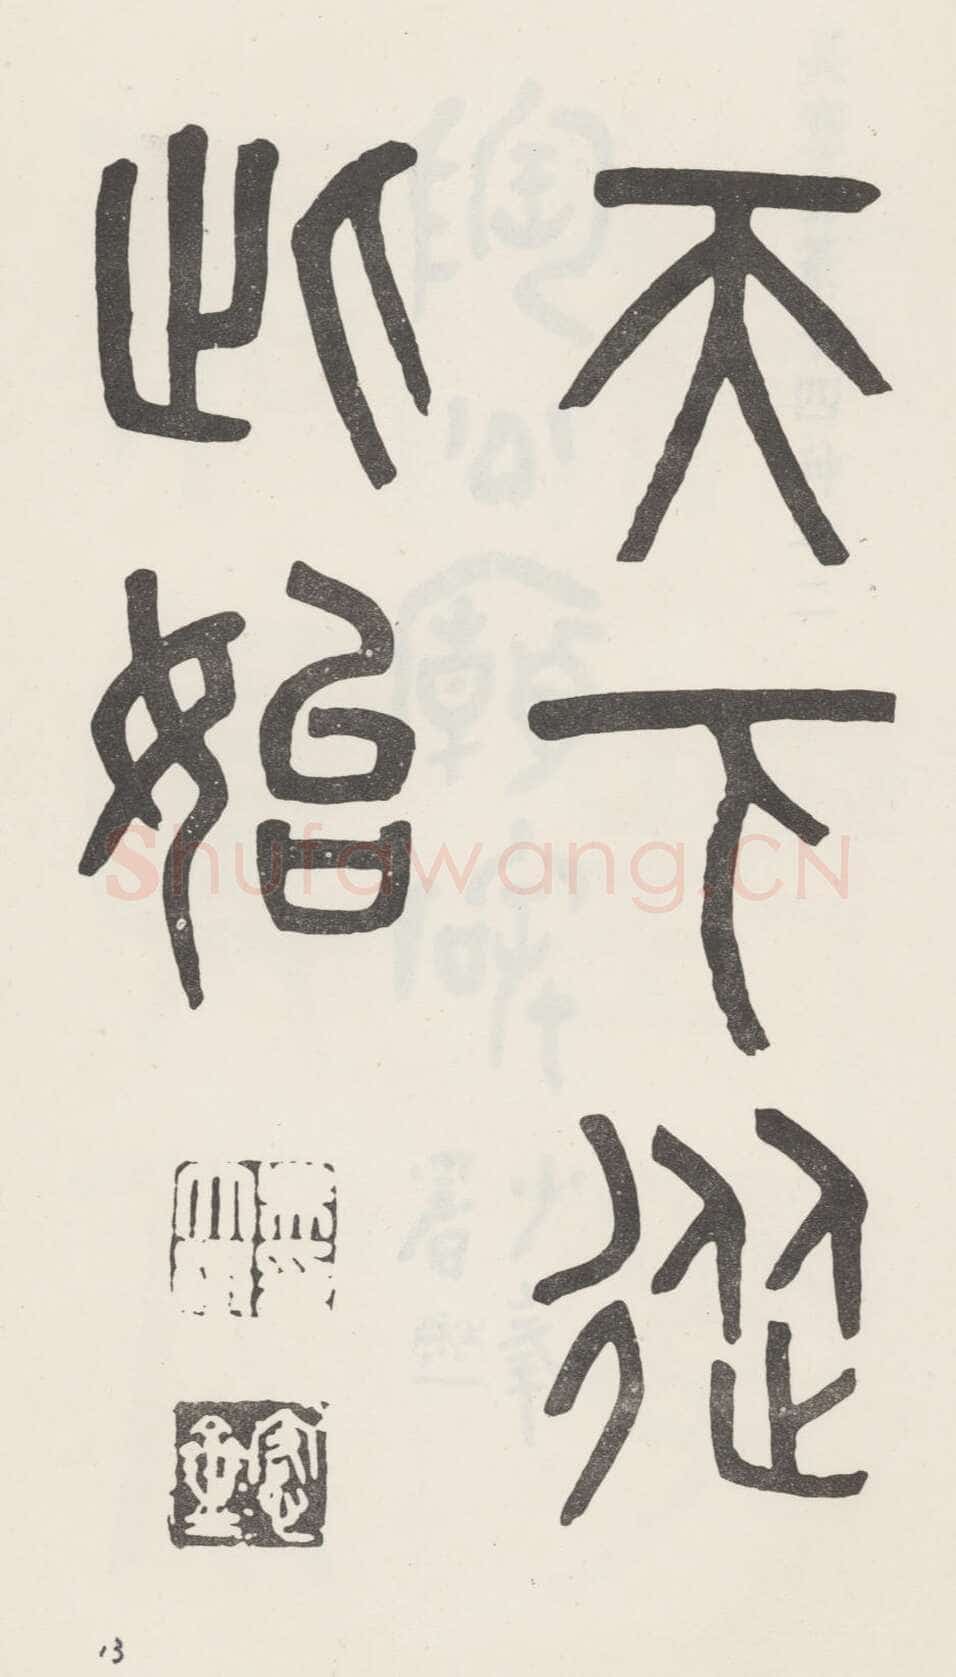 天下從
此始
Shufawang.CN
13